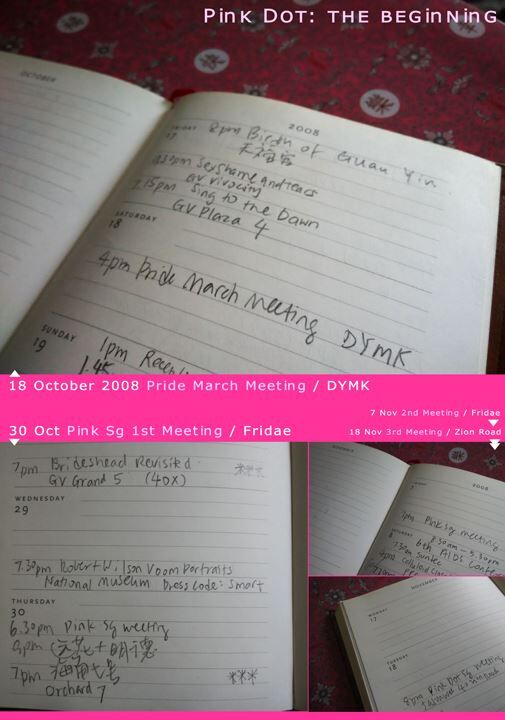 Pink Dot: the beginning
OCTOBER
2008
FRIDAY
17
8pm Birth of Guan Yin
天福宮
SexShame And Tears
GV Vivocity
7.15pm Sing to the Dawn
GV Plaza 4
SATURDAY
18
4pm Pride March Meeting DYMK
SUNDAY
19
1pm
1.45
18 October 2008 Pride March Meeting / DYMK
7 Nov 2nd Meeting / Fridae
30 Oct Pink Sg 1st Meeting / Fridae
18 Nov 3rd Meeting / Zion Road
7pm Brideshead Revisited
GV Grand 5 (40x)
***
WEDNESDAY
29
7.30pm Robert Wilson Voom Portraits
National Museum Dress Code: Smart
THURSDAY
30
6.30pm Pink Sg meeting
7pm 油麻七号 ***
Orchard 7
2008
7pm Pink Sg meeting
8.30am – 5.30pm
6th AIDS
7.30am Suntec
4pm
NOVEMBER
MONDAY
17
TUESDAY
18
8pm Pink Dot Sg meeting